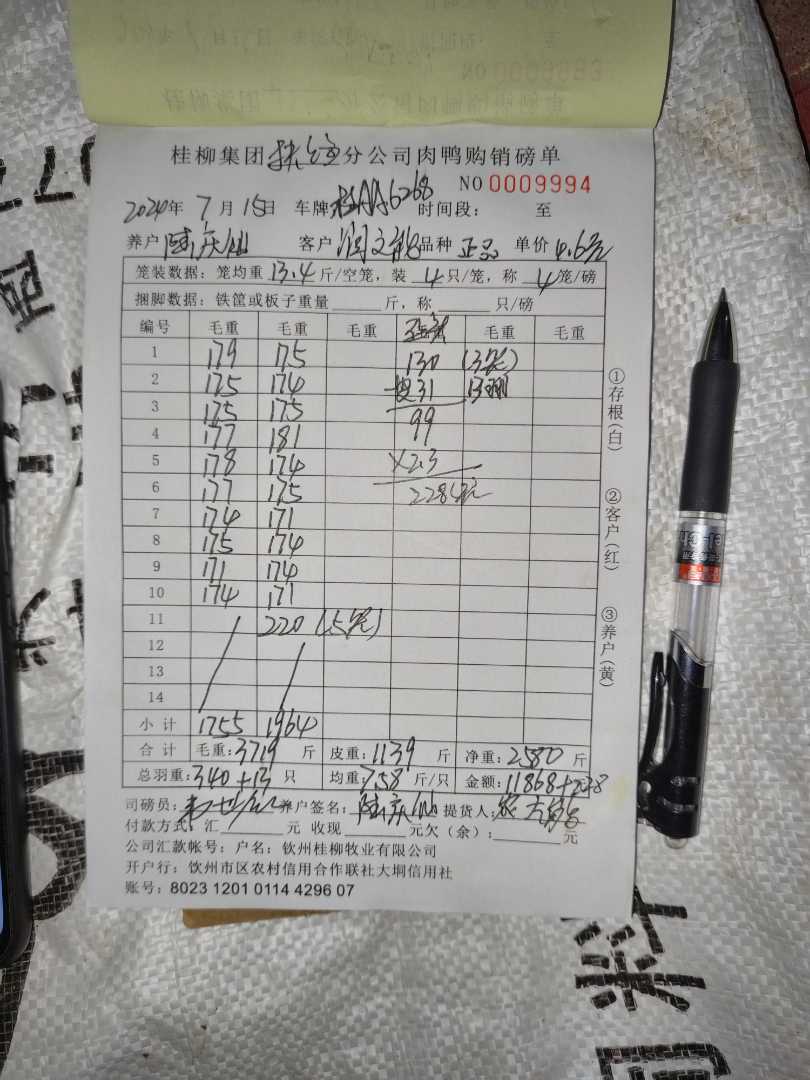 桂柳集团扶绥分公司肉鸭购销磅单
NO 0009994
2024年 7月 15日 车牌 6268 时间段: 至
养户 陆庆灿 客户 品种 正品 单价 4.6元
笼装数据: 笼均重 13.4 斤/空笼, 装 4 只/笼, 称 4 笼/磅
捆脚数据: 铁筐或板子重量 斤, 称 只/磅
编号 毛重 毛重 毛重 毛重 毛重
1 179 175 130 (3笼)
2 175 174 31 13翅
3 175 175 99
4 177 181
5 178 174 ×2.3
6 177 175 228元
7 174 171
8 175 174
9 171 174
10 174 171
11 220 (5笼)
12
13
14
小计 1755 1964
合计 毛重: 3719 斤 皮重: 1139 斤 净重: 2580 斤
总羽重: 340+13 只 均重: 7.58 斤/只 金额: 11868+228
司磅员: 养户签名: 陆庆灿 提货人:
付款方式: 汇 元 收现 元欠(余): 元
公司汇款帐号: 户名: 钦州桂柳牧业有限公司
开户行: 钦州市区农村信用合作联社大垌信用社
账号: 8023 1201 0114 4296 07
①存根(白)
②客户(红)
③养户(黄)